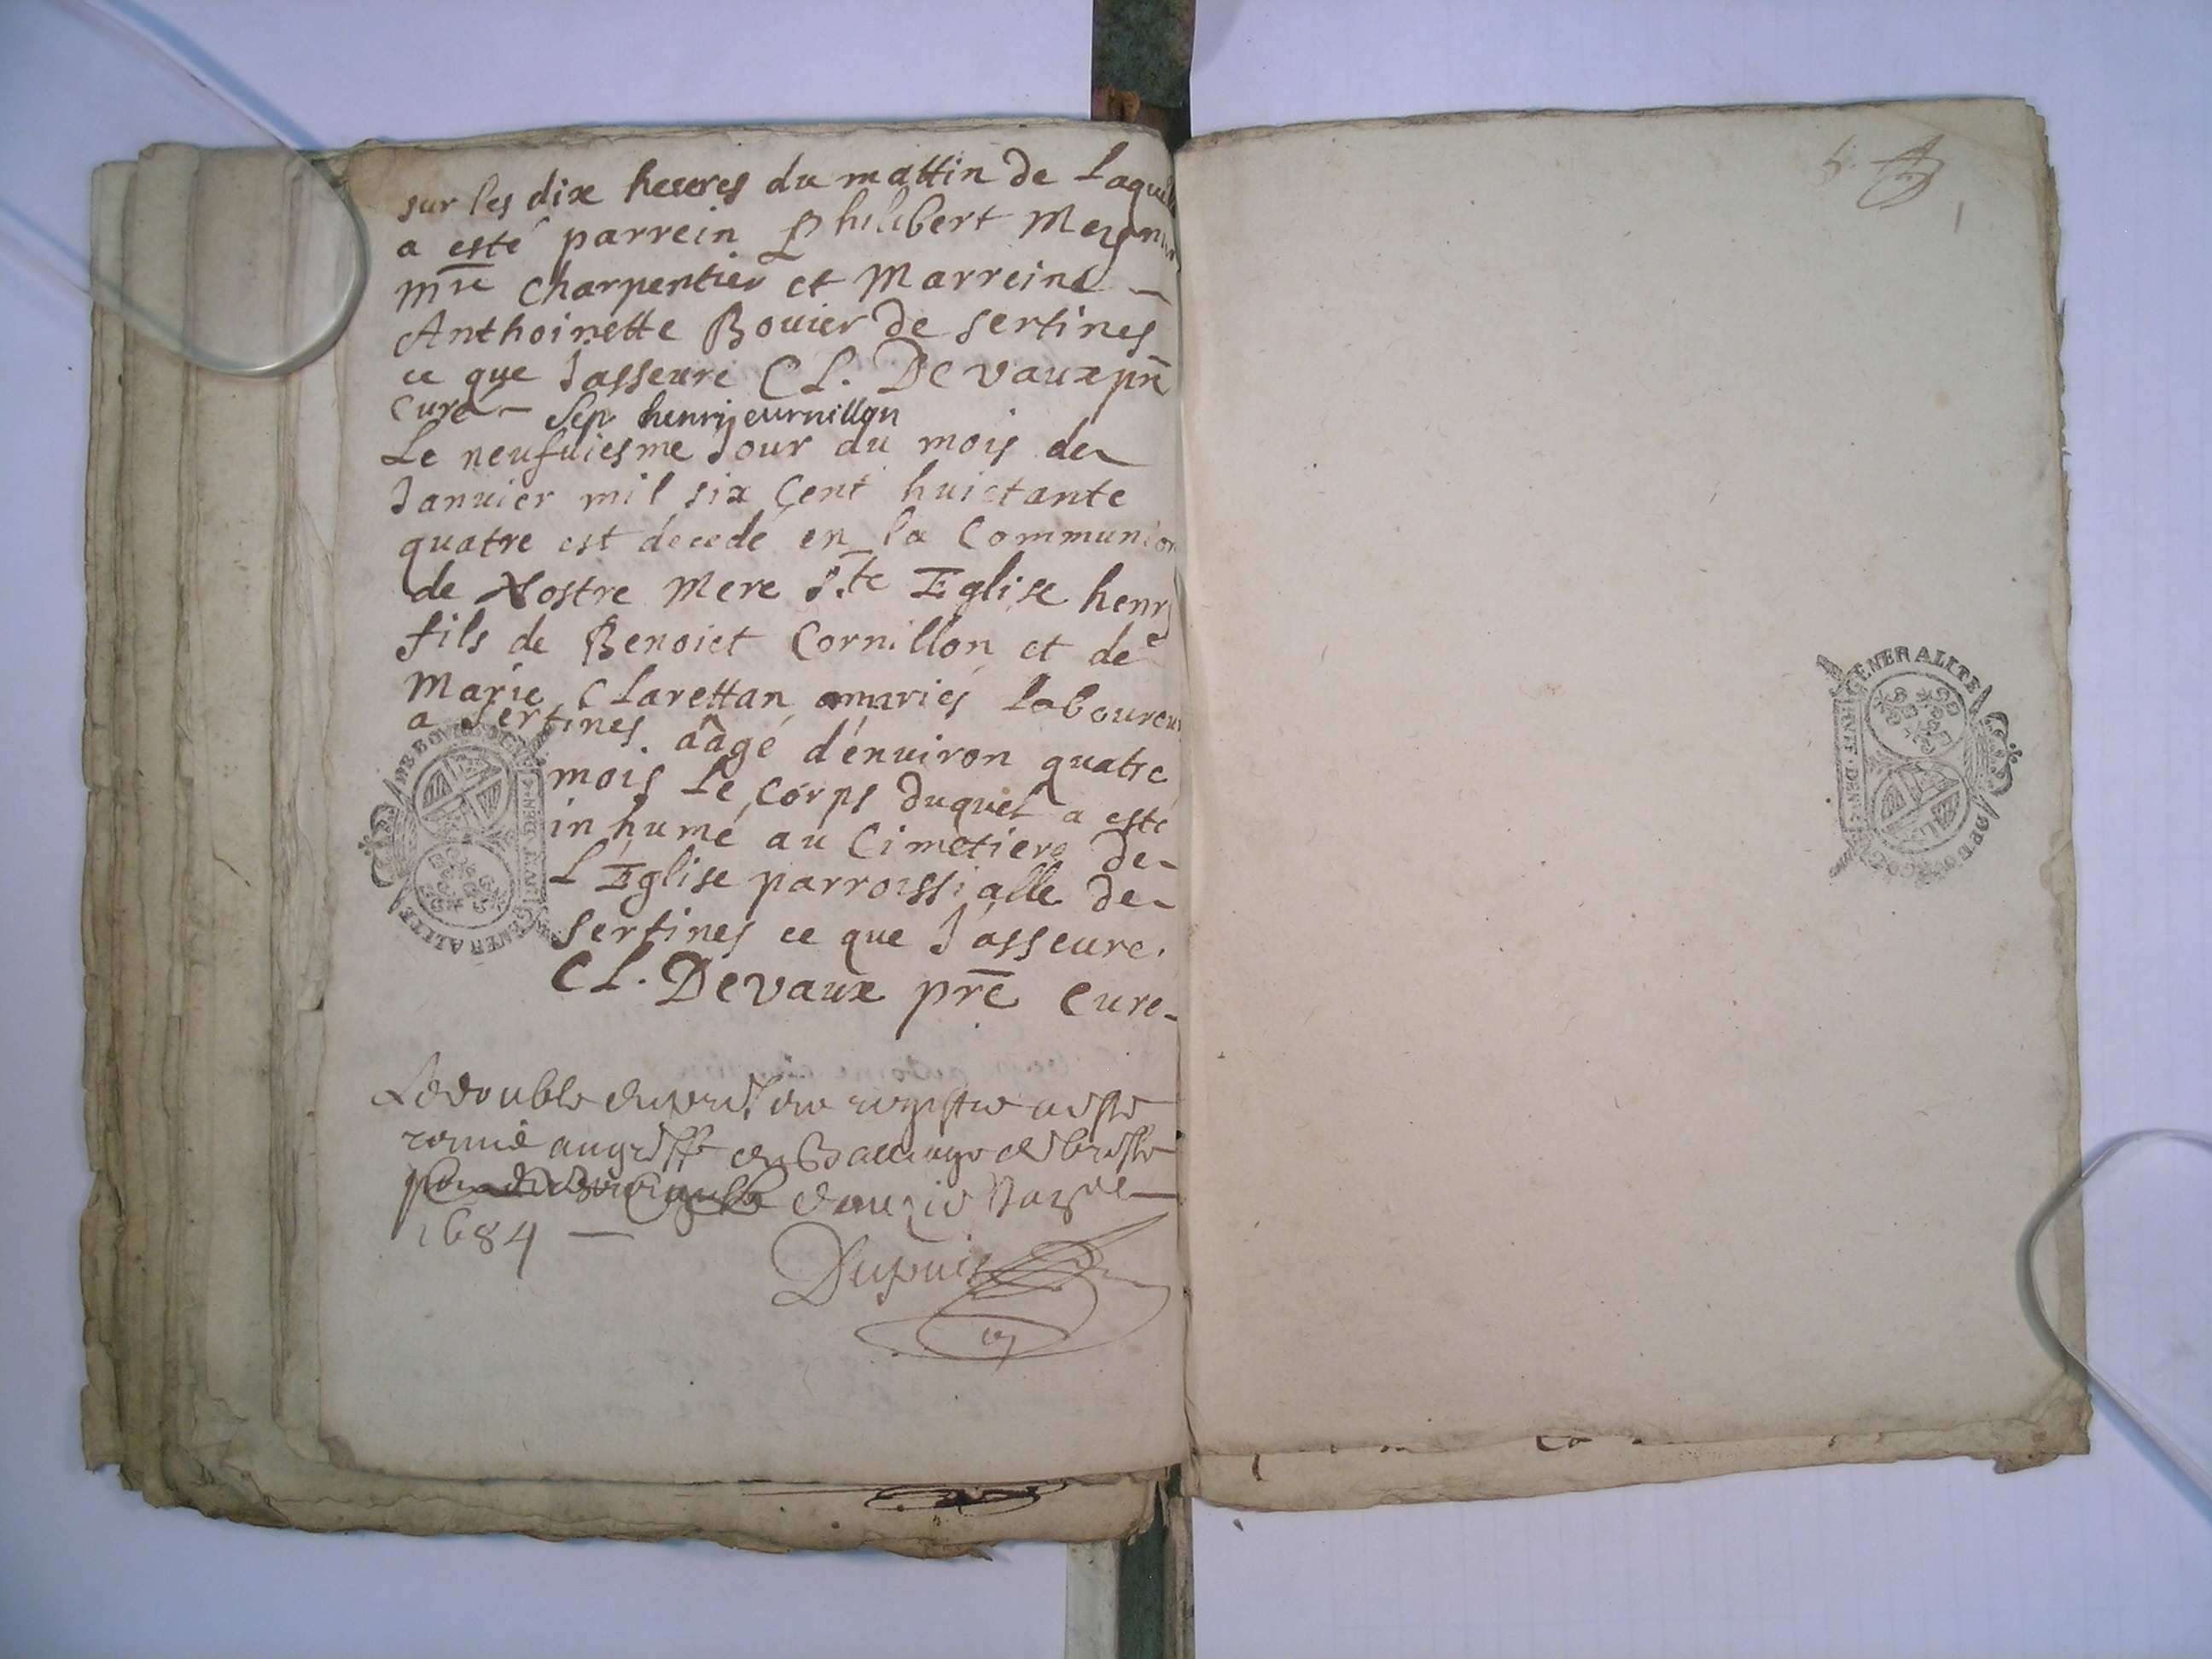 sur les dixe heures du mattin de Laquelle
a esté parrein Philibert
mre Charpentier et Marreine
Anthoinette Bouier de sertines
ce que Jasseure CL. Devaux prē
Curé - Sep henrij curnillon
Le neufuiesme Jour du mois de
Januier mil six Cent huictante
quatre est decedé en la Communion
de Nostre Mere Ste Eglise henry
fils de Benoict Cornillon et de
Marie Clarettan mariés Laboureur
a Sertines. âàgé d'enuiron quatre
mois Le Corps duquel a esté
inhumé au Cimetiere de
L'Eglise parroissialle de
Sertines ce que J'asseure.
CL. Devaux prē Curé
Le double du registre a esté
remis au greffe du Bailliage de bresse
1684
Dupuis
GENERALITE
DE BOVRGOGNE
GENERALITE
DE BOVRGOGNE